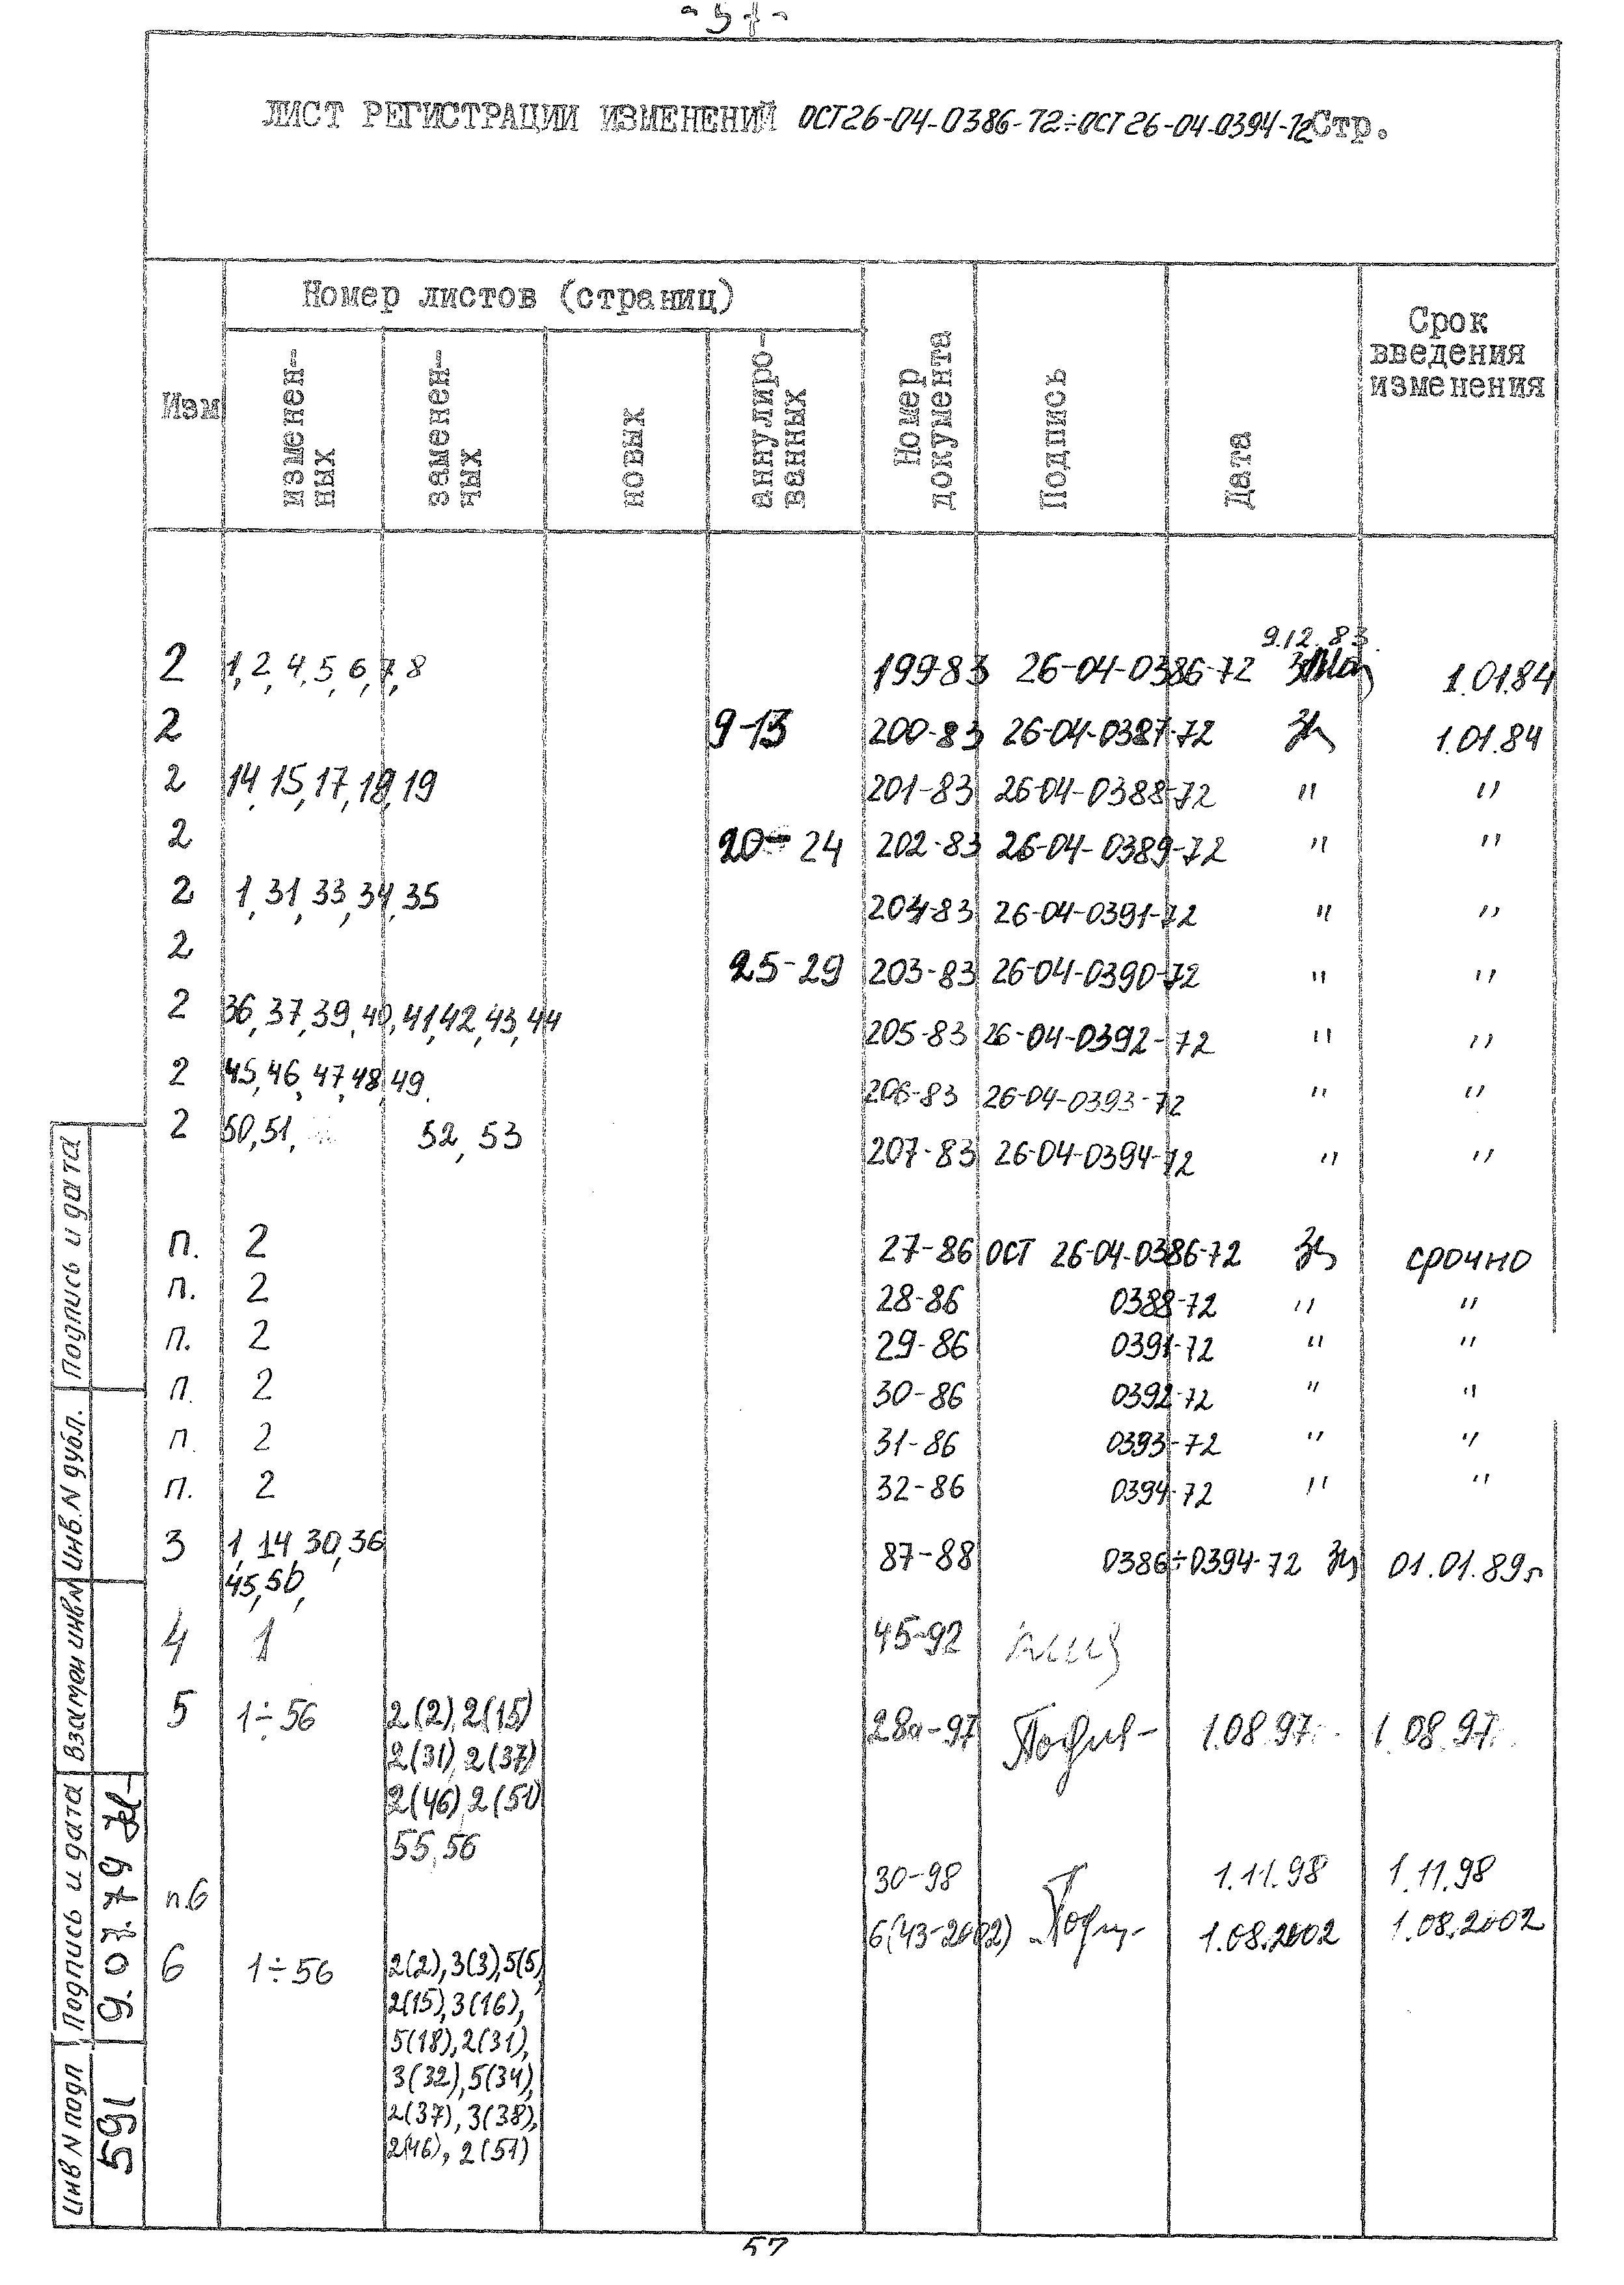 - 57 -
ЛИСТ РЕГИСТРАЦИИ ИЗМЕНЕНИЙ ОСТ26-04-0386-72÷ОСТ26-04-0394-72 Стр.
Изм
Номер листов (страниц)
изменен-
ных
заменен-
ных
новых
аннулиро-
ванных
Номер
документа
Подпись
Дата
Срок
введения
изменения
9.12.83.
2 1,2,4,5,6,7,8 199-83 26-04-0386-72 1.01.84
2 9-13 200-83 26-04-0387-72 1.01.84
2 14,15,17,18,19 201-83 26-04-0388-72 " "
2 20-24 202-83 26-04-0389-72 " "
2 1,31,33,34,35 204-83 26-04-0391-72 " "
2 25-29 203-83 26-04-0390-72 " "
2 36,37,39,40,41,42,43,44 205-83 26-04-0392-72 " "
2 45,46,47,48,49. 206-83 26-04-0393-72 " "
2 50,51, 52,53 207-83 26-04-0394-72 " "
п. 2 27-86 ОСТ 26-04-0386-72 срочно
п. 2 28-86 0388-72 " "
п. 2 29-86 0391-72 " "
п. 2 30-86 0392-72 " "
п. 2 31-86 0393-72 " "
п. 2 32-86 0394-72 " "
3 1,14 30,36 87-88 0386÷0394-72 01.01.89г
45,50,
4 1 45-92
5 1÷56 2(2),2(15) 28а-97 1.08.97. 1.08.97.
2(31),2(37)
2(46),2(51)
55,56
п.6 30-98 1.11.98 1.11.98
6(43-2002) 1.08.2002 1.08.2002
6 1÷56 2(2),3(3),5(5),
2(15),3(16),
5(18),2(31),
3(32),5(34),
2(37),3(38),
2(46),2(51)
Подпись и дата
Инв. N дубл.
Взамен инв N
Подпись и дата
9.07.79
Инв N подл
591
57